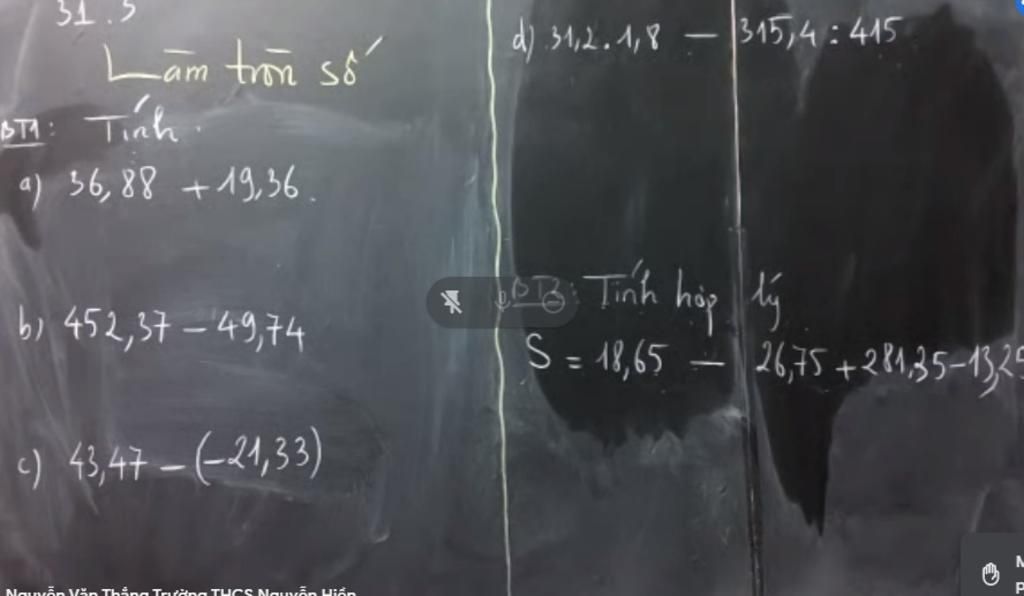 31.5
Làm tròn số
BT1: Tính.
a) 36,88 + 19,36.
b) 452,37 – 49,74
c) 43,47 – (–21,33)
d) 31,2 . 1,8 – 315,4 : 415
BT2: Tính hợp lý
S = 18,65 – 26,75 + 281,35 – 13,25
Nguyễn Văn Thắng Trường THCS Nguyễn Hiền